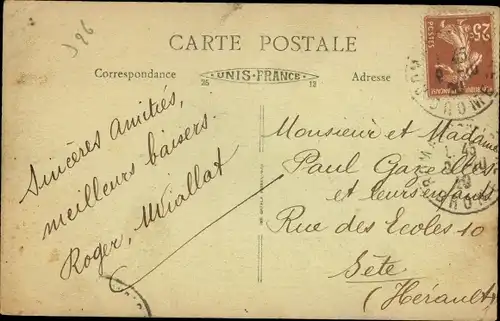 J 26
CARTE POSTALE
Correspondance
UNIS-FRANCE
25
12
Adresse
25c
POSTES
Sincères amitiés,
meilleurs baisers.
Roger, Miallat
Monsieur et Madame
Paul
et leurs enfants
Rue des Ecoles 10
Sète
(Hérault)